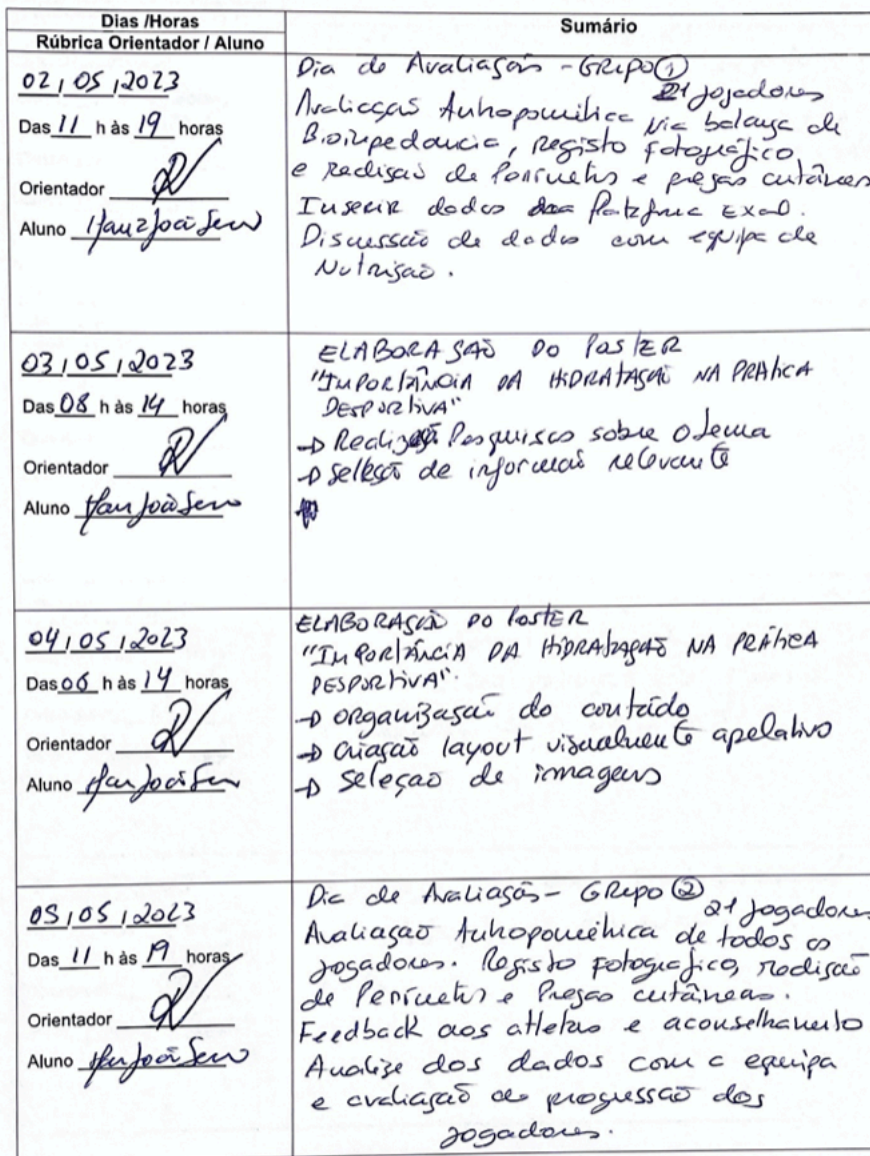 Dias /Horas
Rúbrica Orientador / Aluno
Sumário
02/05/2023
Das 11 h às 19 horas
Orientador
Aluno
Dia de Avaliação - GRUPO ①
21 jogadores
Avaliação Antropométrica via balança de
Bioimpedancia, Registo fotográfico
e Medição de Perímetros e pregas cutâneas
Inserir dados Excel.
Discussão de dados com equipa de
Nutrição.
03/05/2023
Das 08 h às 14 horas
Orientador
Aluno
ELABORAÇÃO DO POSTER
"IMPORTÂNCIA DA HIDRATAÇÃO NA PRÁTICA
DESPORTIVA"
→ Pesquisas sobre o tema
→ de informação relevante
04/05/2023
Das 06 h às 14 horas
Orientador
Aluno
ELABORAÇÃO DO POSTER
"IMPORTÂNCIA DA HIDRATAÇÃO NA PRÁTICA
DESPORTIVA".
→ organização do conteúdo
→ criação layout visualmente apelativo
→ seleção de imagens
05/05/2023
Das 11 h às 19 horas
Orientador
Aluno
Dia de Avaliação - GRUPO ②
21 jogadores
Avaliação Antropométrica de todos os
jogadores. Registo fotografico, medição
de Perímetros e Pregas cutâneas.
Feedback aos atletas e aconselhamento
Analize dos dados com a equipa
e avaliação de progressão dos
jogadores.